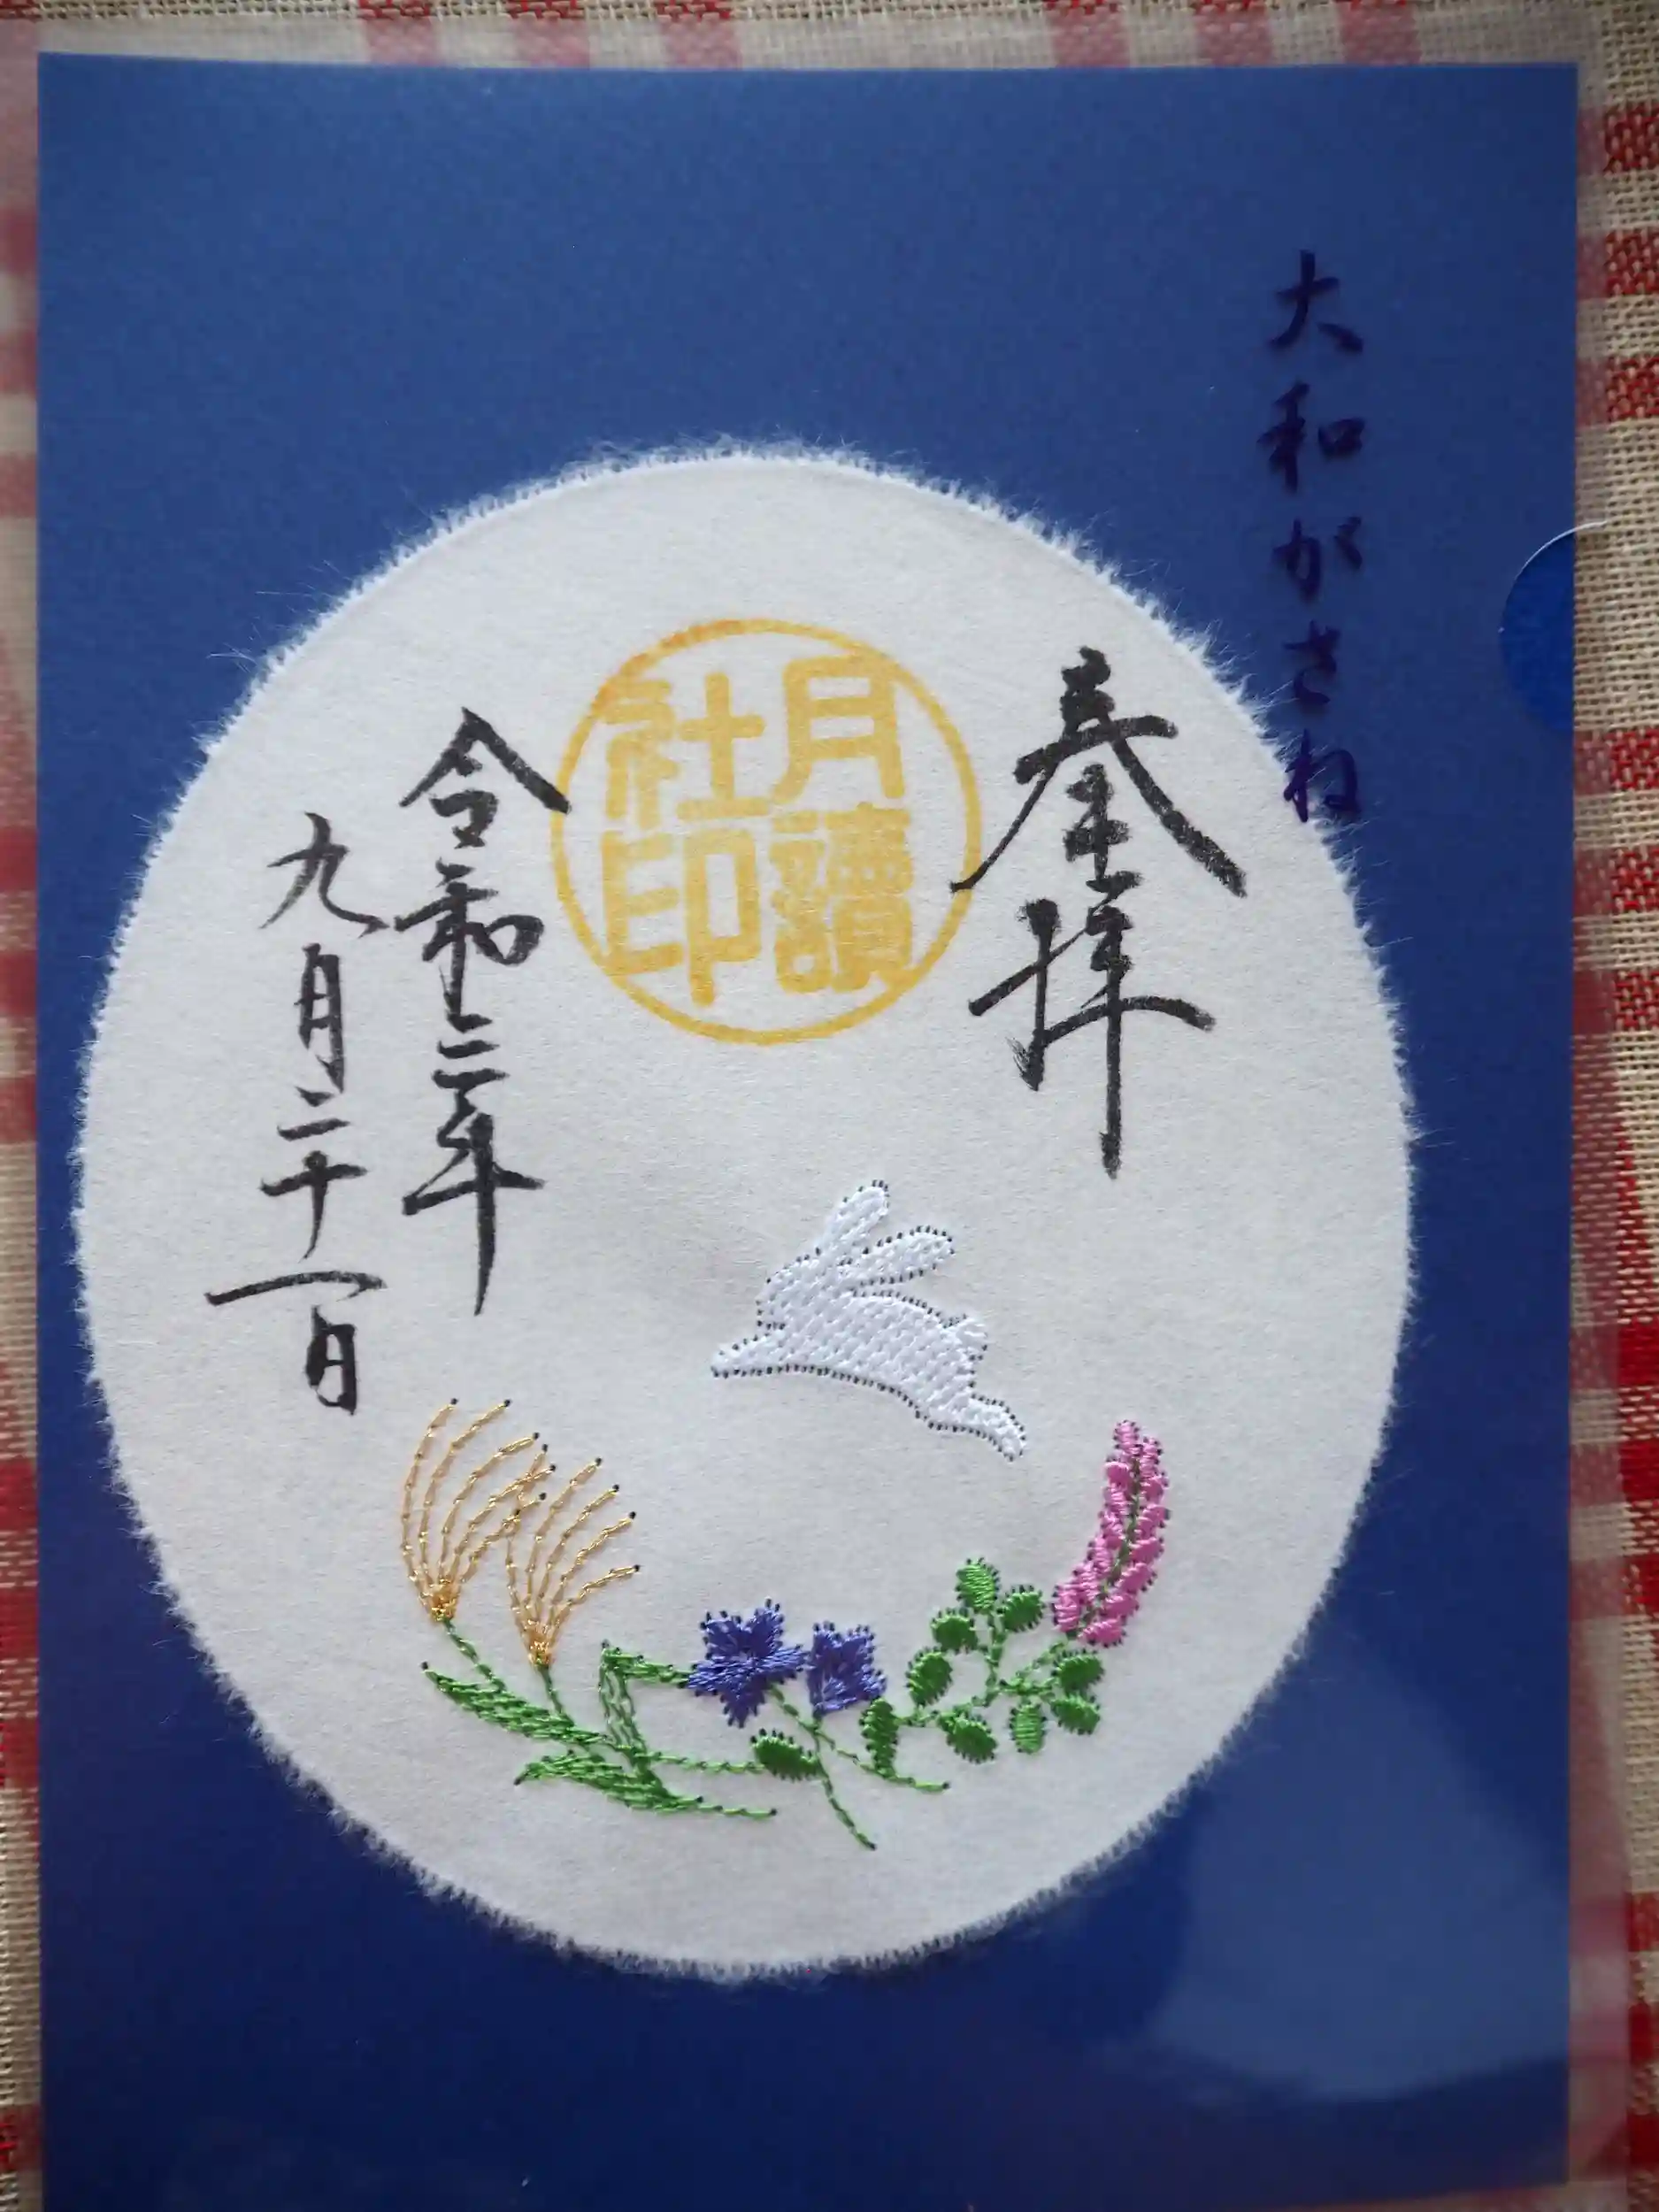 大和がさね
奉拝
月讀
社印
令和二年
九月二十一日